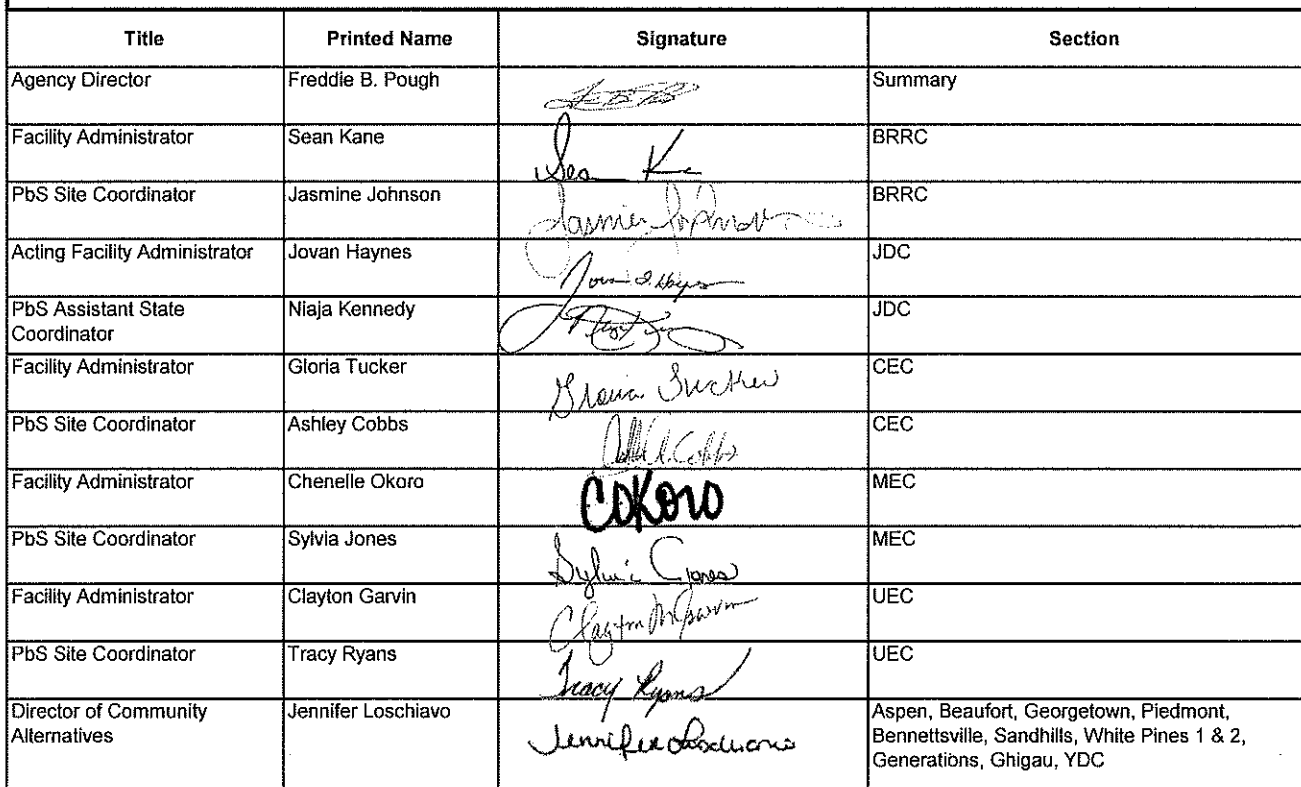 Title Printed Name Signature Section
Agency Director Freddie B. Pough Summary
Facility Administrator Sean Kane Sean K BRRC
PbS Site Coordinator Jasmine Johnson Jasmine Johnson BRRC
Acting Facility Administrator Jovan Haynes JDC
PbS Assistant State
Coordinator Niaja Kennedy JDC
Facility Administrator Gloria Tucker Gloria Tucker CEC
PbS Site Coordinator Ashley Cobbs CEC
Facility Administrator Chenelle Okoro COKORO MEC
PbS Site Coordinator Sylvia Jones Sylvia Jones MEC
Facility Administrator Clayton Garvin Clayton M Garvin UEC
PbS Site Coordinator Tracy Ryans Tracy Ryans UEC
Director of Community
Alternatives Jennifer Loschiavo Jennifer Loschiavo Aspen, Beaufort, Georgetown, Piedmont,
Bennettsville, Sandhills, White Pines 1 & 2,
Generations, Ghigau, YDC